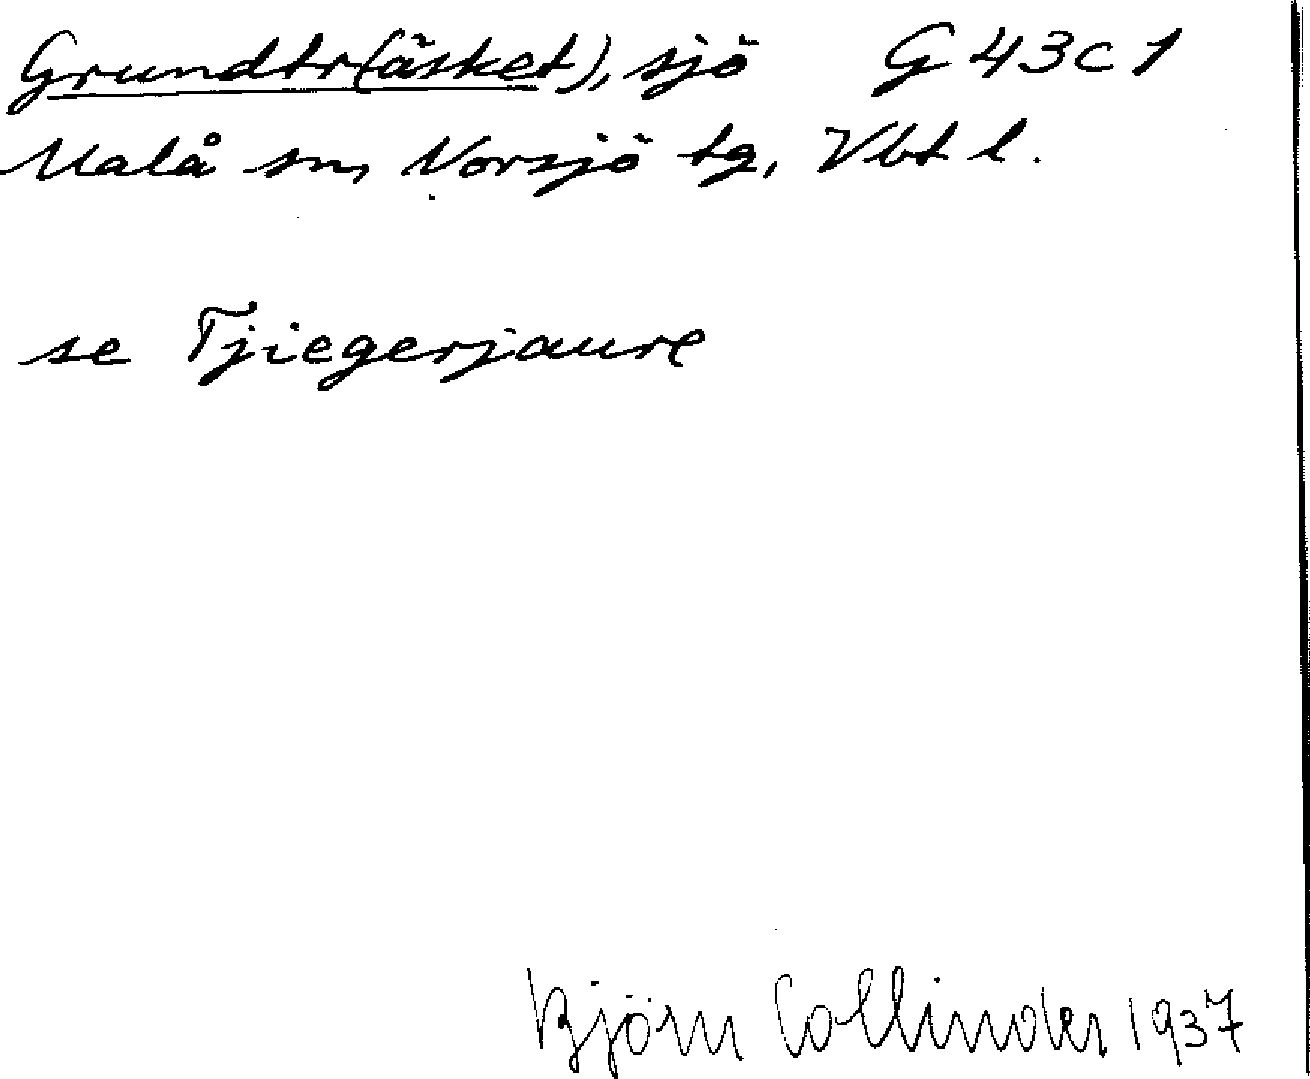 Grundtr(äsket), sjö G 43 c 1
Malå sn, Norsjö tg, Vbt l.
se Tjiegerjaure
Björn Collinder 1937